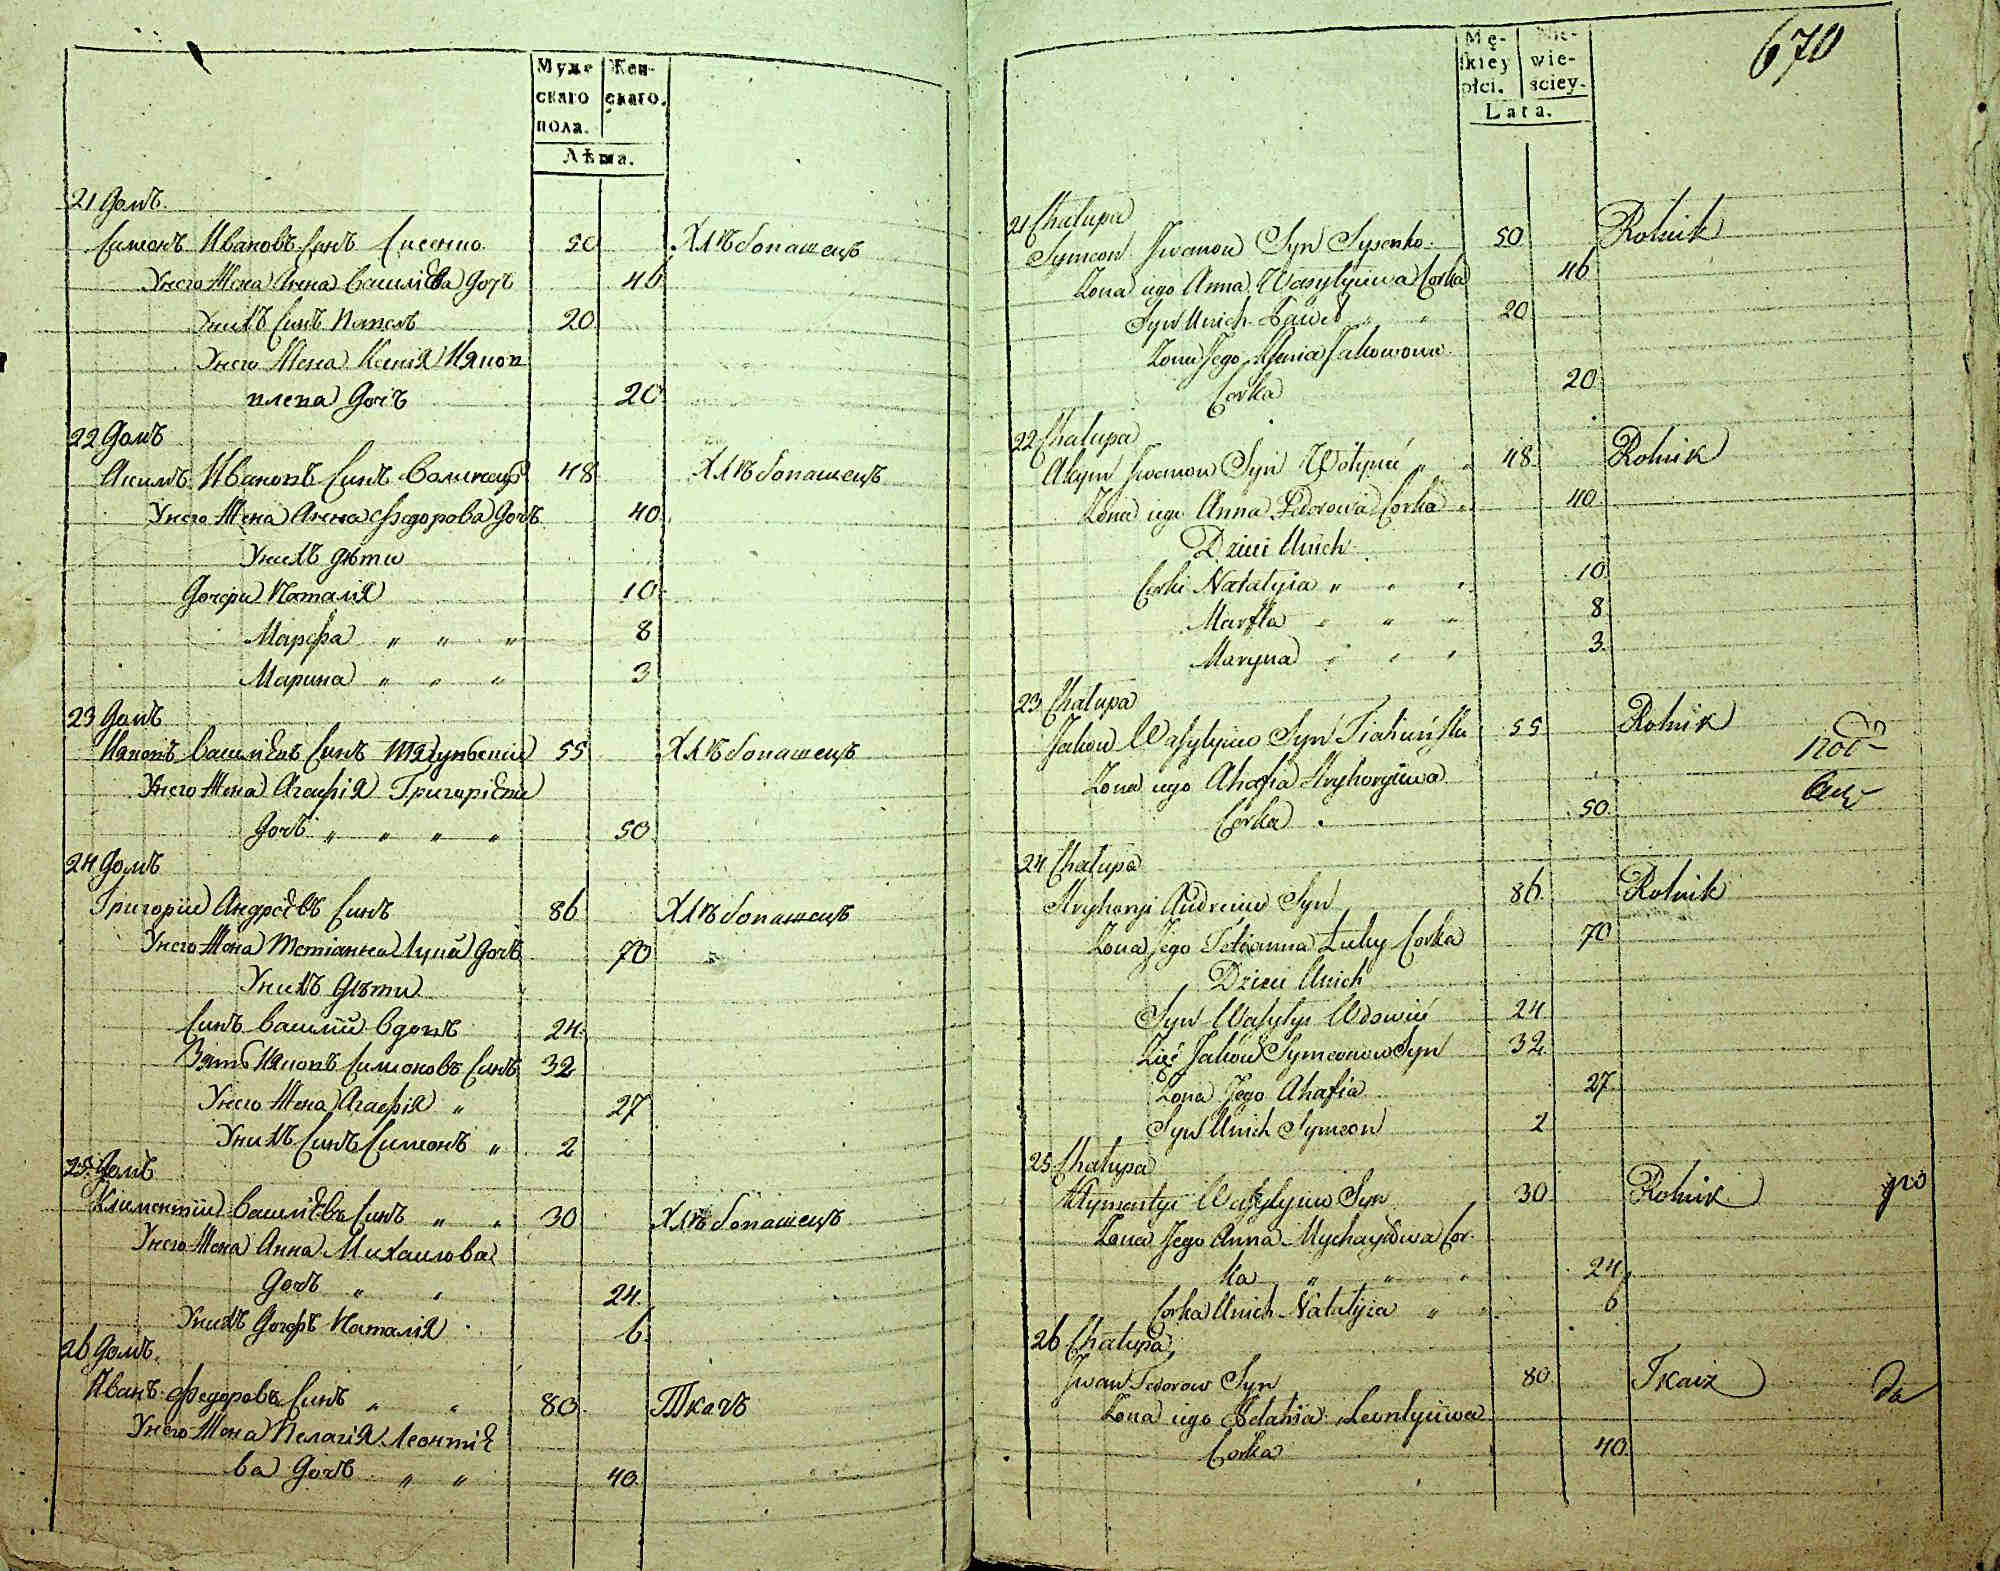 Муже
скаго
пола.
Жен-
скаго.
Лѣта.
21 Домъ
Симонъ Ивановъ Синъ Сисенко 50 Хлѣбопашецъ
У него Жена Анна Василѣва Дочь 46
У нихъ Синъ Павелъ 20
У него Жена Ксенія Яков
лева Дочъ 20
22 Домъ
Акимъ Ивановъ Синъ 48 Хлѣбопашецъ
У него Жена Анна Федорова Дочъ 40
У нихъ дѣти
Дочери Наталія 10
Марфа " " " 8
Марина " " " 3
23 Домъ
Яковъ Василѣвъ Синъ 55 Хлѣбопашецъ
У него Жена Агафія Григоріева
Дочъ " " " " 50
24 Домъ
Григорій Андрѣевъ Синъ 86 Хлѣбопашецъ
У него Жена Тетіанна Луки Дочъ 70
У нихъ Дѣти
Синъ Василій Вдовъ 24
Зять Яковъ Симоновъ Синъ 32
У него Жена Агафія " 27
У нихъ Синъ Симонъ " 2
25 Домъ
Климентій Василѣвъ Синъ " " 30 Хлѣбопашецъ
У него Жена Анна Михаилова
Дочъ " " 24
У нихъ Дочерь Наталія 6
26 Домъ
Иванъ Федоровъ Синъ " " 80 Ткачъ
У него Жена Пелагія Леонтіе
ва Дочъ " " 40
670
Mę-
skiey
płci.
Nie-
wie-
ściey.
Lata.
21 Chałupa
Symeon Iwanow Syn Sysenko 50 Rolnik
Żona iego Anna Wasylyiwa Corka 46
Syn Unich Paweł " " 20
Żona Jego Xenia Jakowowa
Corka 20
22 Chałupa
Akym Iwanow Syn " " 48 Rolnik
Żona iego Anna Fedorowa Corka " 40
Dzieci Unich
Corki Natalyia " " " 10
Marfta " " " 8
Maryna " " " 3
23 Chałupa
Jakow Wasylyiw Syn 55 Rolnik
Żona iego Ahafia Hryhoryiwa
Corka 50
24 Chałupa
Hryhoryi Andreiiw Syn 86 Rolnik
Żona Jego Tetianna Łuky Corka 70
Dzieci Unich
Syn Wasylyi Wdowiec 24
Zięć Jakow Symeonow Syn 32
Żona Jego Ahafia 27
Syn Unich Symeon 2
25 Chałupa
Kłymentyi Wasylyiw Syn 30 Rolnik
Żona Jego Anna Mychayłowa Cor-
ka " " " 24
Corka Unich Natalyia " " 6
26 Chałupa
Iwan Fedorow Syn 80 Tkacz да
Żona iego Pelahia Leontyiwa
Corka 40